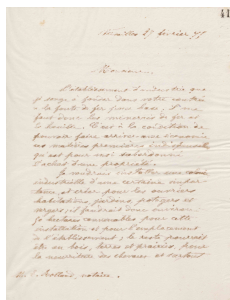 41
Bruxelles 27 février 77
Monsieur,
L'établissement d'industrie que
je songe à fonder dans votre contrée
à la fonte de fer
faut donc les minerais de fer et
la houille. C'est à la condition de
pouvoir faire arriver économi
ces matières premières indispensables
qu'est pour moi subordonné
l'achat d'une propriété.
Je voudrais installer une usine
industrielle d'une certaine impor
tance, et créer pour les ouvriers
habitations, jardins, potagers et
vergers; il faudrait donc environ
hectares convenables pour cette
installation et pour l'emplacement
de l'établissement; le reste pourrait
être en bois, terres et prairies, pour
la nourriture des chevaux et surtout
notaire.